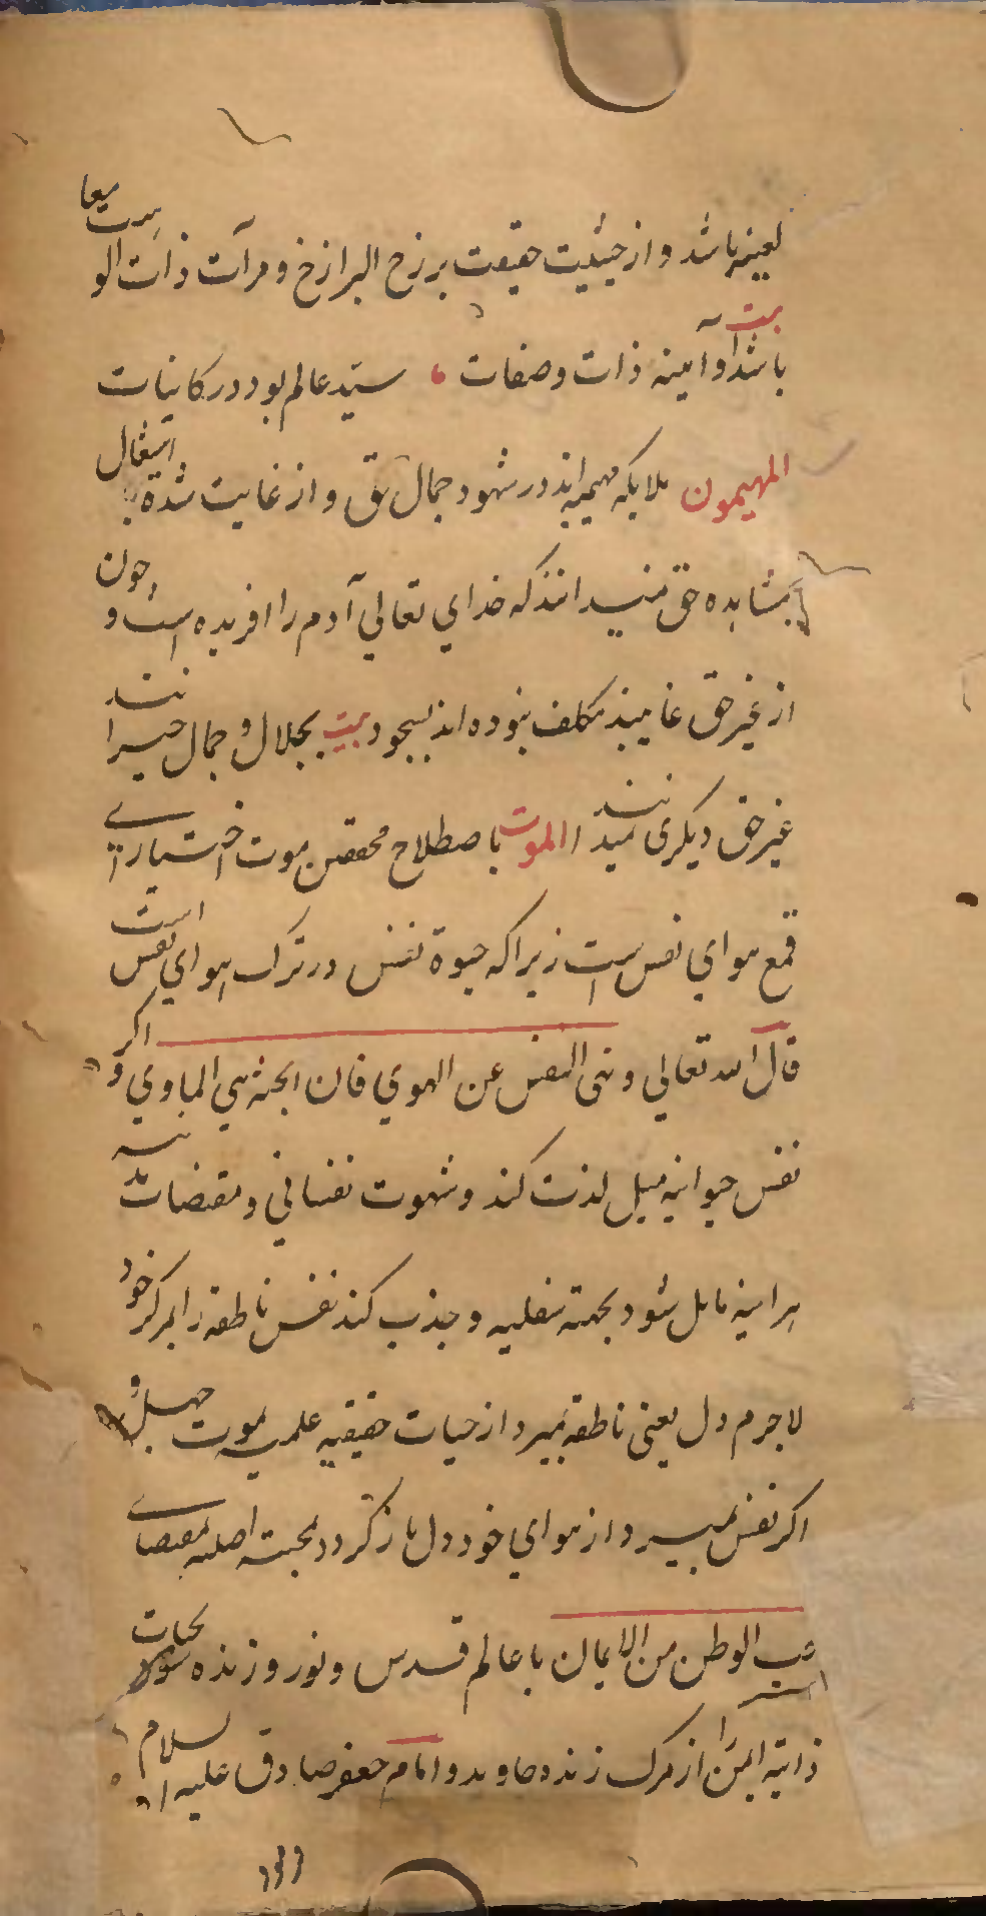 لعینه باشد و از حیثیت حقیقت برزخ البرازخ و مرآت ذات الوهیت معا
باشد بیت او آمینه ذات و صفات ، سید عالم بود در کاینات
المهیمون ملایکه مهیمه اند در شهود جمال حق و از غایت شدة اشتغال
بمشاهده حق نمیدانند که خدای تعالی آدم را افریده است و چون
از غیر حق غایبند مکلف نبوده اند بسجود بیت بجلال و جمال حیرانند
غیر حق دیکری نمیدانند الموت باصطلاح محققین موت اختیاری
قمع هوای نفس است زیرا که حیوة نفس در ترک هوای نفس است
قال الله تعالی و نهی النفس عن الهوی فان الجنة هی الماوی و اکر
نفس حیوانیه میل لذت کند و شهوت نفسانی و مقتضات بدنیه
هراینه مایل شود بجهته سفلیه و جذب کند نفس ناطقه را بمرکز خود
لاجرم دل یعنی ناطقه بمیرد از حیات حقیقیه علمیه بموت جهل و
اکر نفس بمیرد از هوای خود دل باز کردد بمحبته اصلیه بمقتضای
حب الوطن من الایمان با عالم قدس و نور و زنده شود بحیات
ذاتیه ایمن از مرک زنده جاوید و امام جعفر صادق علیه السلام